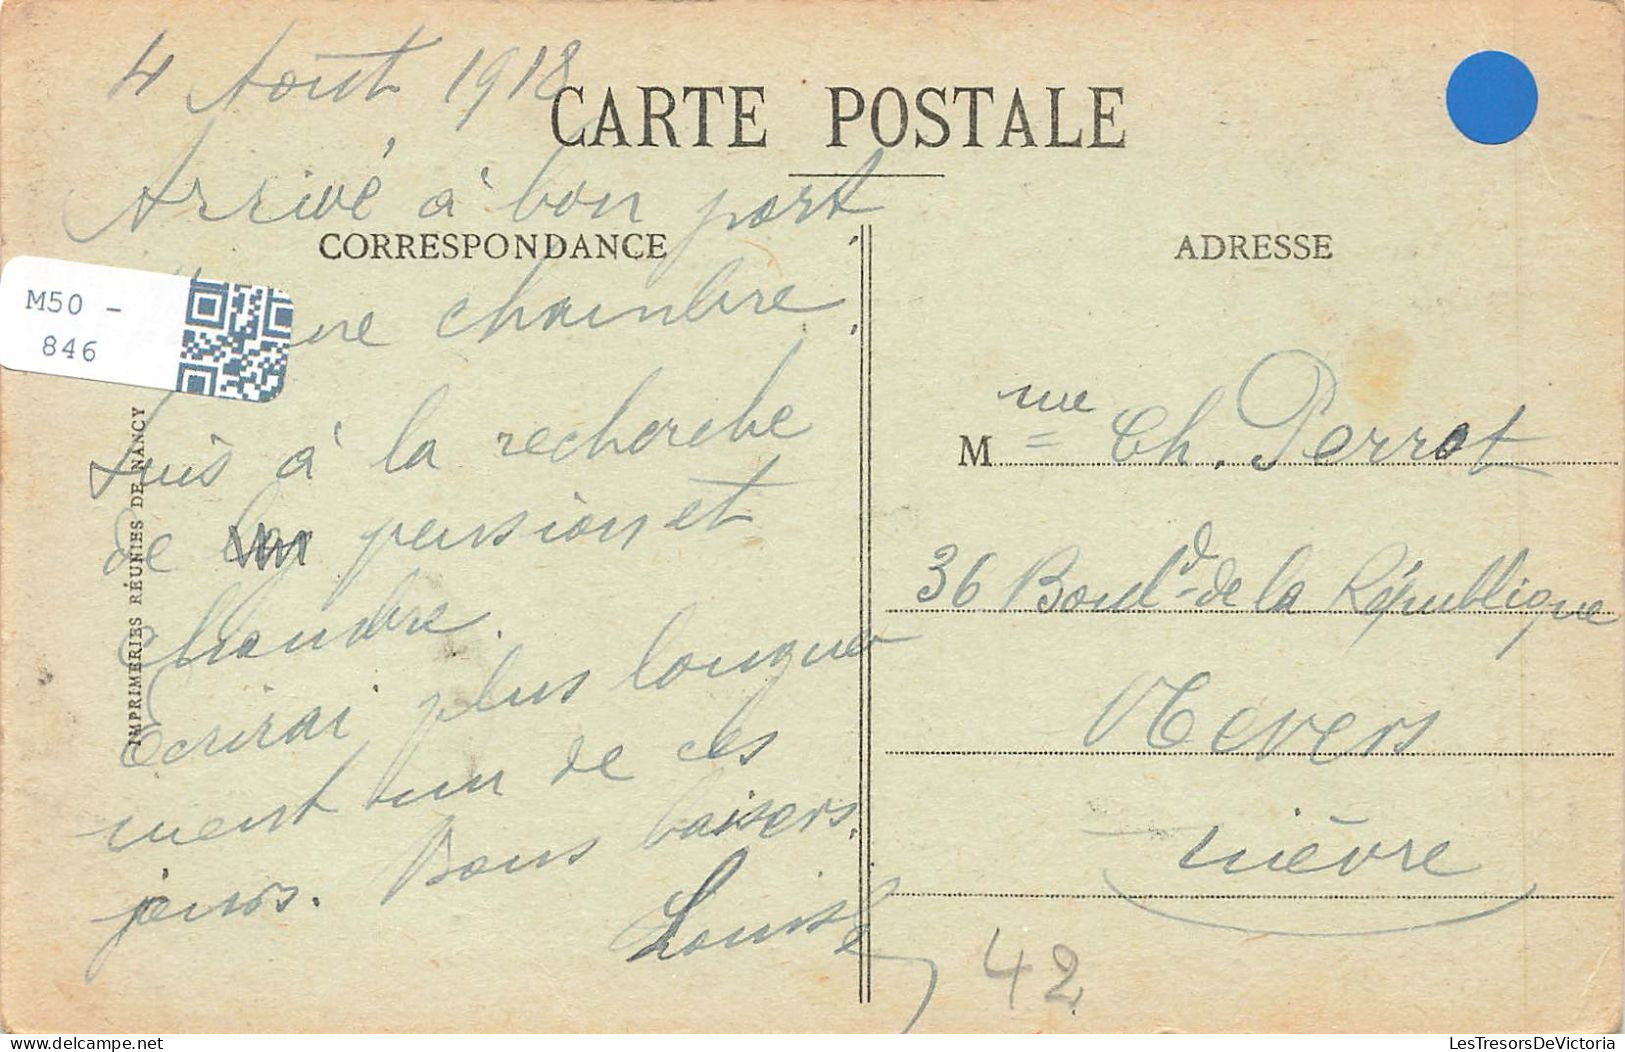 4 Août 1918
CARTE POSTALE
Arrivé à bon port
CORRESPONDANCE
chambre.
M50 -
846
Suis à la recherche
de pension et
chambre.
Ecrirai plus longue
ment un de ces
jours. Bons baisers.
Louise
IMPRIMERIES RÉUNIES DE NANCY
ADRESSE
M me Ch. Perrot
36 Boul.d de la République
Nevers
Nièvre
42
LesTresorsDeVictoria
delcampe.net